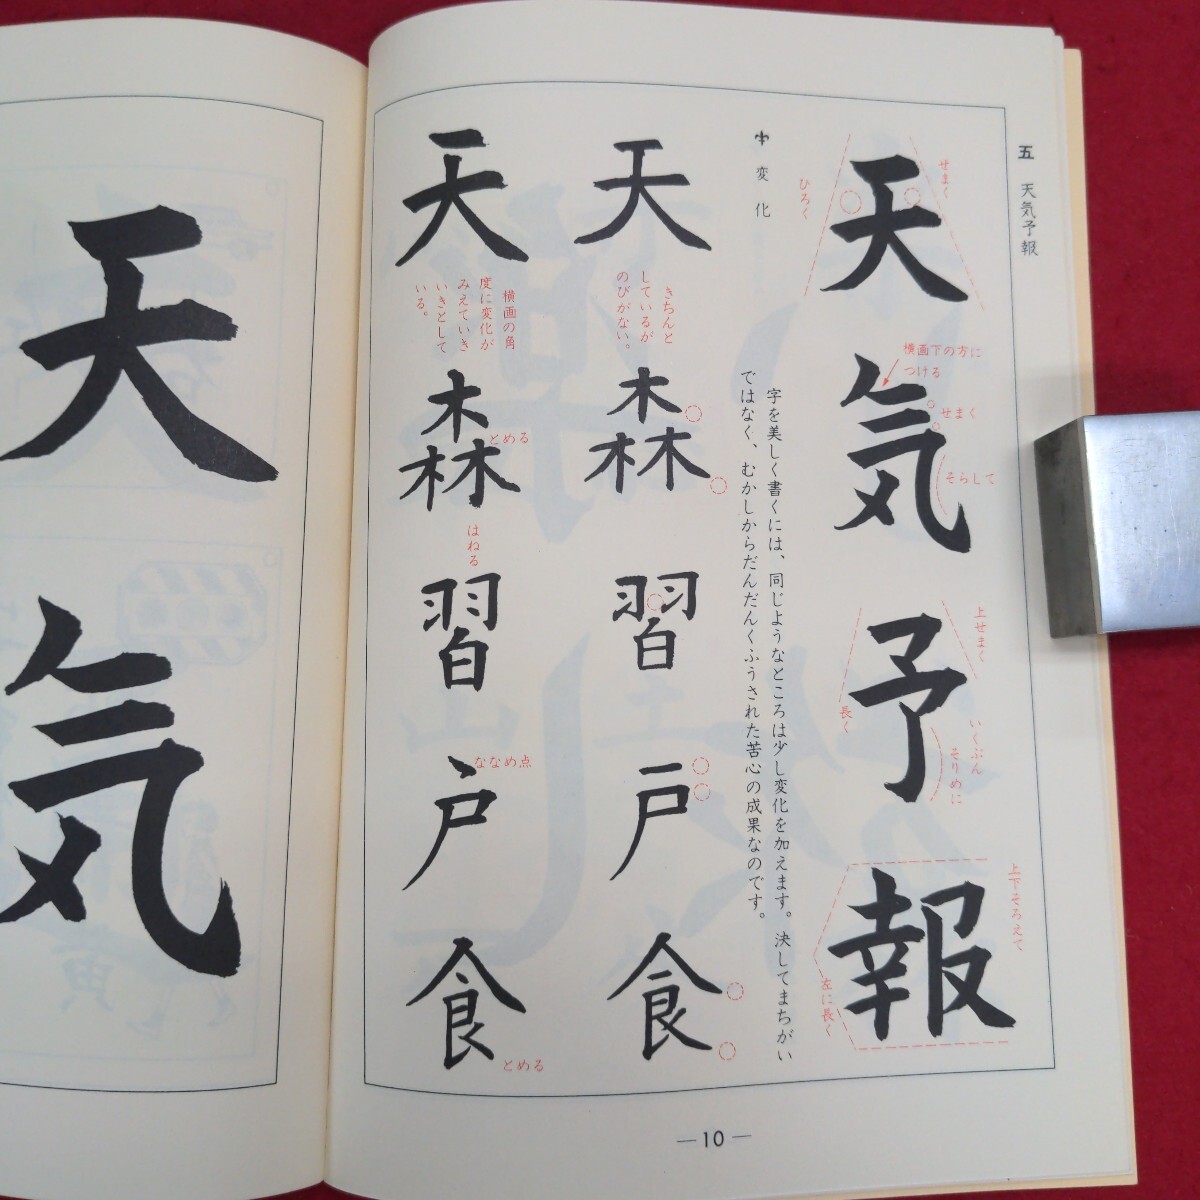 五 天気予報
天気予報
せまく
ひろく
横画下の方に
つける
せまく
そらして
上せまく
長く
いくぶん
そりめに
上下そろえて
左に長く
変化
字を美しく書くには、同じようなところは少し変化を加えます。決してまちがい
ではなく、むかしからだんだんくふうされた苦心の成果なのです。
天森習戸食
きちんと
しているが
のびがない。
天森習戸食
横画の角
度に変化が
みえていき
いきとして
いる。
とめる
はねる
ななめ点
とめる
―10―
天気